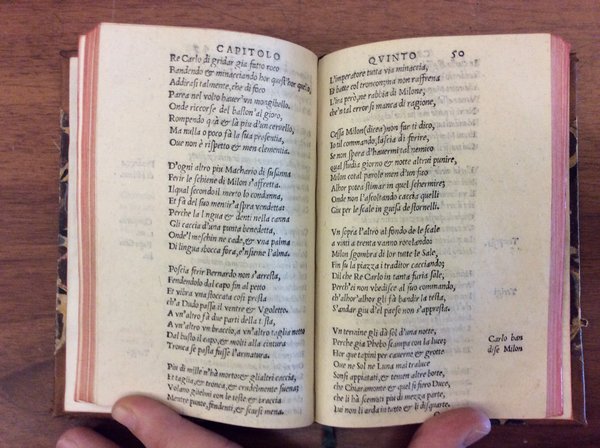 CAPITOLO
Re Carlo di gridar gia fatto roco
Bandendo & minacciando hor quest'hor quello,
Addirasi talmente, che di foco
Parea nel volto hauer' vn mongibello.
Onde ricorse del baston' al gioro,
Rompendo q̃à & là piu d'un ceruello,
Ma nulla o poco fa la sua presentia,
Oue non è rispetto & men clementia.
D'ogni altro piu Machario di susanna
A ferir le schiene di Milon s'affretta.
Ilqual secondo il merto lo condanna,
Et fà del suo menir'aspra vendetta:
Perche la lingua & denti nella canna
Gli caccia d'una punta benedetta,
Onde'l meschin ne cade, & vna palma
Di lingua sbocca fora, e'nsieme l'alma.
Poscia ferir Bernardo non s'arresta,
Fendendolo dal capo fin al petto
Et vibra vna stoccata cosi presta
ch'a Dudo passa il ventre & Vgoletto.
A vn'altro fà due parti della testa,
A vn'altro vn braccio, a vn'altro taglia netto
Dal busto il capo, & molti alla cintura
Tronca se pasta fusse l'armatura.
Piu di mille n'hà morto & gli altri caccia,
Et taglia, & tronca, & crudelmente suena:
Volano gli elmi con le teste & braccia
Mentre punte, fendenti, & scarsi mena.
QVINTO 50
L'imperatore tutta via minaccia,
Et batte col tronconzina non raffrena
L'ira però, ne rabbia di Milone,
che'n tal error se manca di ragione,
Cessa Milon (dicea) non far ti dico,
Io tel commando, lascia di ferire,
Se non spera d'hauermi tal nemico
qual studia giorno & notte altrui punire,
Milon cotal parole men d'un fico
Alhor potea stimar in quel schermire;
Onde non l'ascoltando caccia quelli
Giu per le scale in guisa de stornelli.
Vn sopra l'altro al fondo de le scale
A vinti a trenta vanno rotolando:
Milon sgombra di lor tutte le Sale,
Fin su la piazza i traditor cacciando;
Di che Re Carlo in tanta furia sale,
Perch'ei non vbedisce al suo commando,
ch'alhor'alhor gli fà bandir la testa,
S'andar giu d'el paese non s'appresta.
Vn termine gli dà sol d'una notte,
Perche gia Phebo scampa con la luce;
Hor que tapini per cauerne & grotte
Oue ne Sol ne Luna mai traluce
Sonsi appiatati, & temen altre botte,
che Chiaramonte & quel si fiero Duce,
che li hà scemati piu di mezza parte,
Lui non li arda in tutto & li disquarte.
Carlo ban
dise Milon